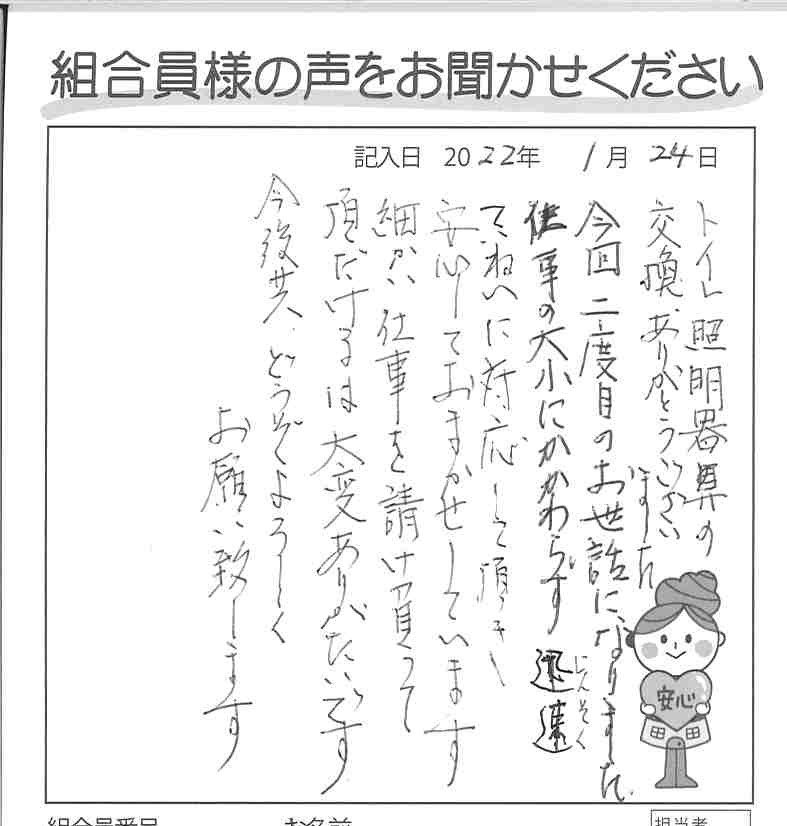 組合員様の声をお聞かせください
記入日 2022年 1月 24日
トイレ照明器具の
交換、ありがとうござい
ました
今回二度目のお世話になりました。
仕事の大小にかかわらず 迅速
じんそく
ていねいに対応して頂き
安心しておまかせしています
細かい仕事を請け負って
頂だけるは大変ありがたいです
今後共、どうぞよろしく
お願い致します
安心
組合員番号
お名前
担当者